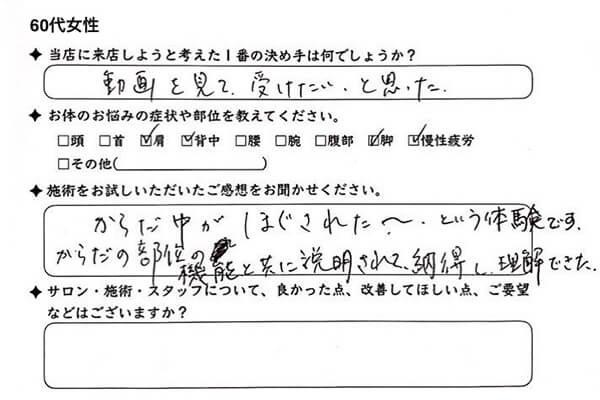 60代女性
✦ 当店に来店しようと考えた1番の決め手は何でしょうか？
動画を見て、受けたい、と思った。
✦ お体のお悩みの症状や部位を教えてください。
□頭 □首 ☑肩 ☑背中 □腰 □腕 □腹部 ☑脚 ☑慢性疲労
□その他( )
✦ 施術をお試しいただいたご感想をお聞かせください。
からだ中が ほぐされた〜、という体験です。
からだの部位の機能と共に説明されて、納得し、理解できた。
✦ サロン・施術・スタッフについて、良かった点、改善してほしい点、ご要望
などはございますか？